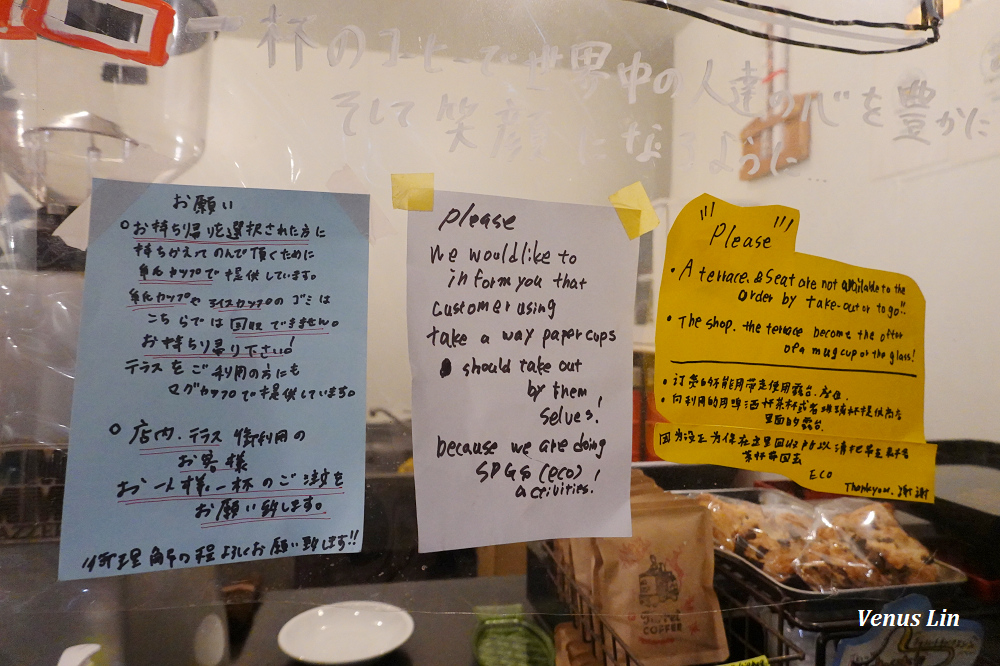 一杯のコーヒーで世界中の人達の心を豊かに
そして笑顔になるように...
お願い
○お持ち帰りを選択された方に
持ちかえってのんで頂くために
紙カップで提供しています。
紙カップやアイスカップのゴミは
こちらでは回収できません。
お持ち帰り下さい!
テラスをご利用の方にも
マグカップで提供しています。
○店内、テラス御利用の
お客様
お一人様一杯のご注文を
お願い致します。
御理解の程よろしくお願い致します!!
please
we would like to
inform you that
customer using
take a way paper cups
should take out
by them
selves!
because we are doing
SDGs (eco)!
activities.
"Please"
・A terrace, & seat are not available to the
order by take-out or to go!!
・The shop. the terrace become the offer
of a mug cup or the glass!
・向利用的用啤酒杯茶杯或者玻璃杯提供商店
里面的露台
ECO
Thankyou. 谢谢
HOTEL
COFFEE
Venus Lin